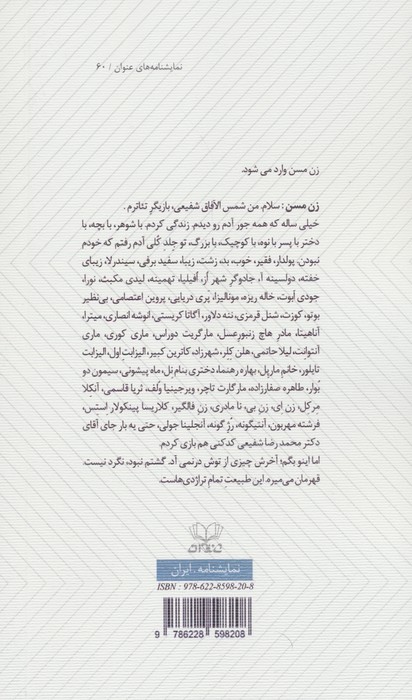 نمایشنامه‌های عنوان / ۶۰
زن مسن وارد می شود.
زن مسن : سلام. من شمس الآفاق شفیعی، بازیگرِ تئاترم .
خیلی ساله که همه جور آدم رو دیدم. زندگی کردم. با شوهر، با بچه، با
دختر با پسر با نوه، با کوچیک، با بزرگ، تو جلدِ کُلی آدم رفتم که خودم
نبودن. پولدار، فقیر، خوب، بد، زشت، زیبا، سفید برفی، سیندرلا، زیبای
خفته، دولسینه آ، جادوگرِ شهر اُز، اُفیلیا، تهمینه، لیدی مکبث، نورا،
جودی آبوت، خاله ریزه، مونالیزا، پری دریایی، پروین اعتصامی، بی‌نظیر
بوتو، کوزت، شنل قرمزی، ننه دلاور، آگاتا کریستی، انوشه انصاری، میترا،
آناهیتا، مادر هاچ زنبورعسل، مارگریت دوراس، ماری کوری، ماری
آنتوانت، لیلا حاتمی، هلن کلر، شهرزاد، کاترین کبیر، الیزابت اول، الیزابت
تایلور، خانم مارپل، بهاره رهنما، دختری بنام نل، ماه پیشونی، سیمون دو
بُوار، طاهره صفارزاده، مارگارت تاچر، ویرجینیا وُلف، ثریا قاسمی، آنگلا
مِرکل، زن اِی، زن بی، نا مادری، زنِ فالگیر، کلاریسا پینکولار استِس،
فرشته مهربون، آنتیگونه، رُزِ گونه، آنجلینا جولی، حتی یه بار جای آقای
دکتر محمدرضا شفیعی کدکنی هم بازی کردم.
اما اینو بگم؛ آخرش چیزی از توش درنمی آد. گشتم نبود، نگرد نیست.
قهرمان می‌میره. این طبیعتِ تمامِ تراژدی‌هاست.
عنوان
نمایشنامه . ایران
ISBN : 978-622-8598-20-8
9 786228 598208